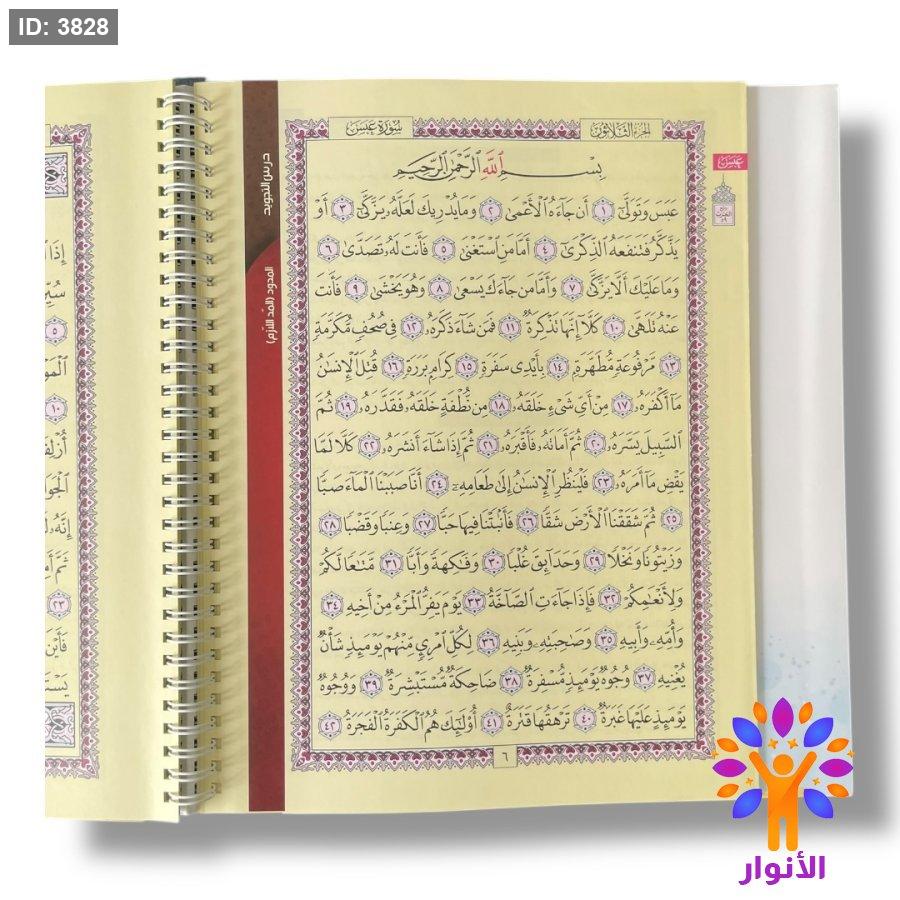 ID: 3828
سُورَةُ عَبَسَ
الجزء الثلاثون
عَبَسَ
درس التجويد
المدود (المد اللازم)
بِسْمِ ٱللَّهِ ٱلرَّحْمَٰنِ ٱلرَّحِيمِ
عَبَسَ وَتَوَلَّىٰٓ ١ أَن جَآءَهُ ٱلْأَعْمَىٰ ٢ وَمَا يُدْرِيكَ لَعَلَّهُۥ يَزَّكَّىٰٓ ٣ أَوْ
يَذَّكَّرُ فَتَنفَعَهُ ٱلذِّكْرَىٰٓ ٤ أَمَّا مَنِ ٱسْتَغْنَىٰ ٥ فَأَنتَ لَهُۥ تَصَدَّىٰ ٦
وَمَا عَلَيْكَ أَلَّا يَزَّكَّىٰ ٧ وَأَمَّا مَن جَآءَكَ يَسْعَىٰ ٨ وَهُوَ يَخْشَىٰ ٩ فَأَنتَ
عَنْهُ تَلَهَّىٰ ١٠ كَلَّآ إِنَّهَا تَذْكِرَةٌ ١١ فَمَن شَآءَ ذَكَرَهُۥ ١٢ فِى صُحُفٍ مُّكَرَّمَةٍ
١٣ مَّرْفُوعَةٍ مُّطَهَّرَةٍۭ ١٤ بِأَيْدِى سَفَرَةٍ ١٥ كِرَامٍۭ بَرَرَةٍ ١٦ قُتِلَ ٱلْإِنسَٰنُ
مَآ أَكْفَرَهُۥ ١٧ مِنْ أَىِّ شَىْءٍ خَلَقَهُۥ ١٨ مِن نُّطْفَةٍ خَلَقَهُۥ فَقَدَّرَهُۥ ١٩ ثُمَّ
ٱلسَّبِيلَ يَسَّرَهُۥ ٢٠ ثُمَّ أَمَاتَهُۥ فَأَقْبَرَهُۥ ٢١ ثُمَّ إِذَا شَآءَ أَنشَرَهُۥ ٢٢ كَلَّا لَمَّا
يَقْضِ مَآ أَمَرَهُۥ ٢٣ فَلْيَنظُرِ ٱلْإِنسَٰنُ إِلَىٰ طَعَامِهِۦٓ ٢٤ أَنَّا صَبَبْنَا ٱلْمَآءَ صَبًّا
٢٥ ثُمَّ شَقَقْنَا ٱلْأَرْضَ شَقًّا ٢٦ فَأَنۢبَتْنَا فِيهَا حَبًّا ٢٧ وَعِنَبًا وَقَضْبًا ٢٨
وَزَيْتُونًا وَنَخْلًا ٢٩ وَحَدَآئِقَ غُلْبًا ٣٠ وَفَٰكِهَةً وَأَبًّا ٣١ مَّتَٰعًا لَّكُمْ
وَلِأَنْعَٰمِكُمْ ٣٢ فَإِذَا جَآءَتِ ٱلصَّآخَّةُ ٣٣ يَوْمَ يَفِرُّ ٱلْمَرْءُ مِنْ أَخِيهِ ٣٤
وَأُمِّهِۦ وَأَبِيهِ ٣٥ وَصَٰحِبَتِهِۦ وَبَنِيهِ ٣٦ لِكُلِّ ٱمْرِئٍ مِّنْهُمْ يَوْمَئِذٍ شَأْنٌ
يُغْنِيهِ ٣٧ وُجُوهٌ يَوْمَئِذٍ مُّسْفِرَةٌ ٣٨ ضَاحِكَةٌ مُّسْتَبْشِرَةٌ ٣٩ وَوُجُوهٌ
يَوْمَئِذٍ عَلَيْهَا غَبَرَةٌ ٤٠ تَرْهَقُهَا قَتَرَةٌ ٤١ أُو۟لَٰٓئِكَ هُمُ ٱلْكَفَرَةُ ٱلْفَجَرَةُ ٤٢
٦
إِذَا
٥
١٠
٢٣
فَأَيْنَ
الأنوار